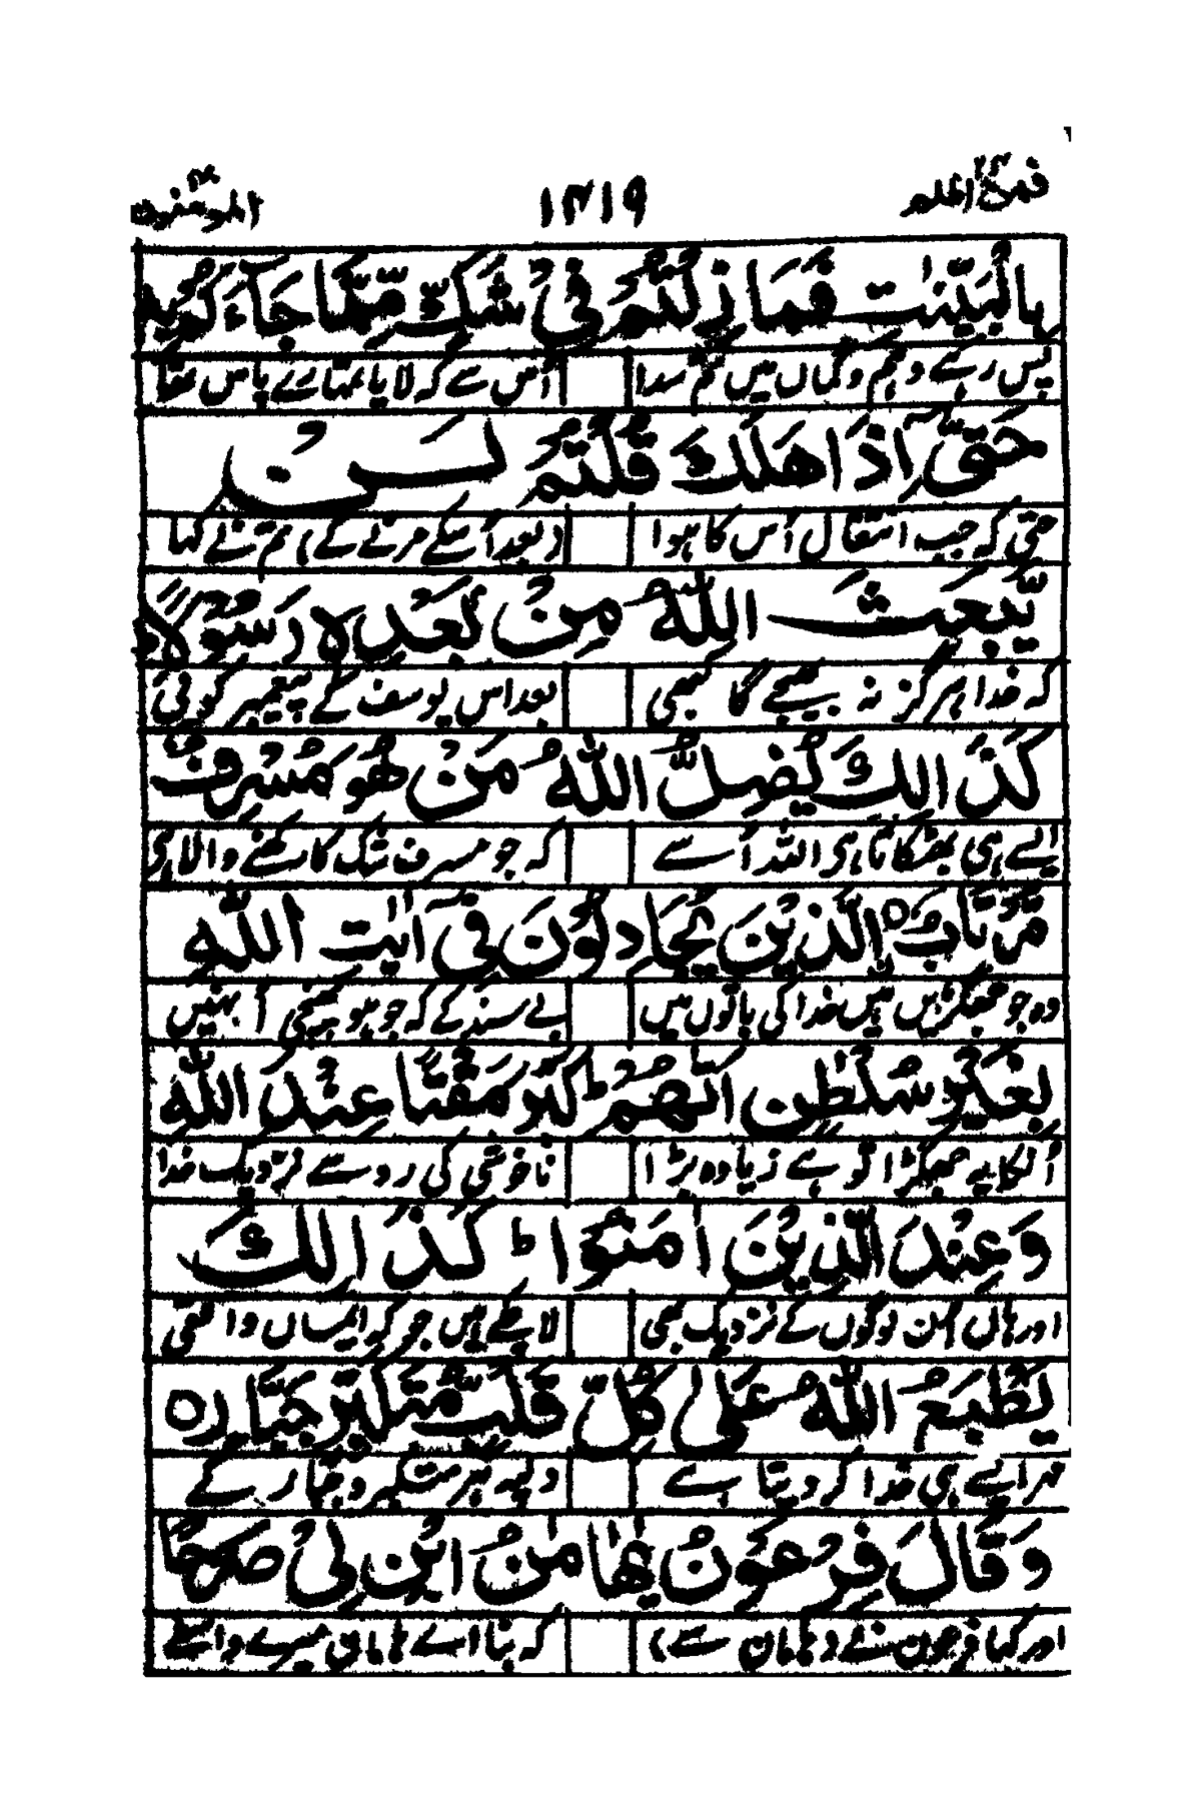 فمن اظلم ٢٤ ١٣١٩ المؤمنون ٤٠
بِالْبَيِّنٰتِ فَمَا زِلْتُمْ فِىْ شَكٍّ مِّمَّا جَآءَكُمْ بِهٖ
پس رہے وہم وگماں میں تم سدا اُس سے کہ لایا تمہارے پاس تھا
حَتّٰىٓ اِذَا هَلَكَ قُلْتُمْ لَــنْ
حتی کہ جب انتقال اُس کا ہوا (بعد اُسکے مرنے کے) تم نے کہا
يَّبْعَثَ اللّٰهُ مِنْۢ بَعْدِهٖ رَسُوْلًا
کہ خدا ہرگز نہ بھیجے گا کبھی بعد اس یوسف کے پیغمبر کوئی
كَذَالِكَ يُضِلُّ اللّٰهُ مَنْ هُوَ مُسْرِفٌ
ایسے ہی بھٹکاتا ہی اللہ اُسے کہ جو مسرف شک کا رکھنے والا ہی
مُّرْتَابُ ۨ ۙ الَّذِيْنَ يُجَادِلُوْنَ فِىْٓ اٰيٰتِ اللّٰهِ
وہ جو جھگڑیں ہیں خدا کی باتوں میں بے سند کے کہ جو ہو پہنچی اُنہیں
بِغَيْرِ سُلْطٰنٍ اَتٰهُمْ ؕ كَبُرَ مَقْتًا عِنْدَ اللّٰهِ
اُنکا یہ جھگڑا تو ہے زیادہ بڑا ناخوشی کی رو سے نزدیک خدا
وَعِنْدَ الَّذِيْنَ اٰمَنُوْا ؕ كَذَالِكَ
اور ہاں اُن لوگوں کے نزدیک بھی لا چکے ہیں جو کہ ایماں واقعی
يَطْبَعُ اللّٰهُ عَلٰى كُلِّ قَلْبِ مُتَكَبِّرٍ جَبَّارٍ ٥
مہر ایسے ہی خدا کر دیتا ہے دل پہ ہر متکبر و جبار کے
وَقَالَ فِرْعَوْنُ يٰهَامٰنُ ابْنِ لِىْ صَرْحًا
اور کہا فرعون نے (ہامان سے) کہ بنا اے ہاماں میرے واسطے